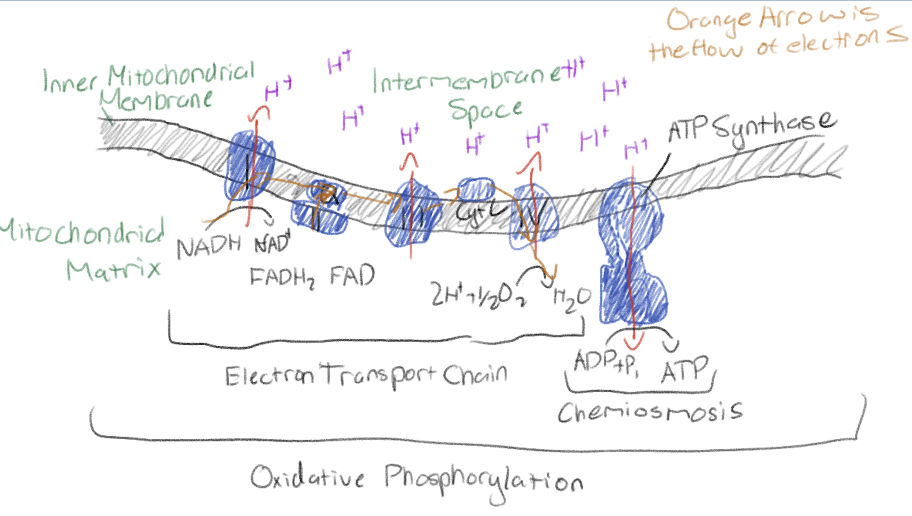 Orange Arrow is
the flow of electrons
Inner Mitochondrial
Membrane
Intermembrane
Space
H⁺
H⁺
H⁺
H⁺
H⁺
H⁺
H⁺
H⁺
H⁺
H⁺
ATP Synthase
I
II
Q
III
Cyt C
IV
Mitochondrial
Matrix
NADH NAD⁺
FADH₂ FAD
2H⁺+1/2O₂ H₂O
ADP+Pᵢ ATP
Electron Transport Chain
Chemiosmosis
Oxidative Phosphorylation